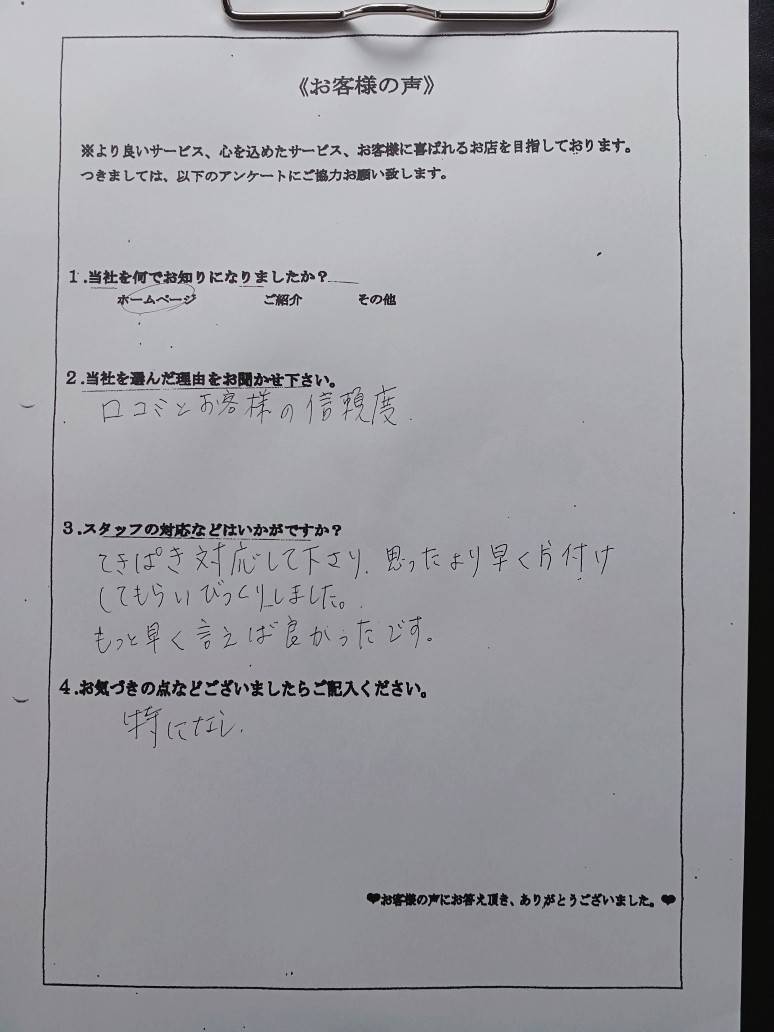 《お客様の声》
※より良いサービス、心を込めたサービス、お客様に喜ばれるお店を目指しております。
つきましては、以下のアンケートにご協力お願い致します。
1.当社を何でお知りになりましたか？
ホームページ ご紹介 その他
2.当社を選んだ理由をお聞かせ下さい。
口コミとお客様の信頼度.
3.スタッフの対応などはいかがですか？
てきぱき対応して下さり、思ったより早く片付け
してもらいびっくりしました。
もっと早く言えば良かったです。
4.お気づきの点などございましたらご記入ください。
特になし.
❤お客様の声にお答え頂き、ありがとうございました。❤